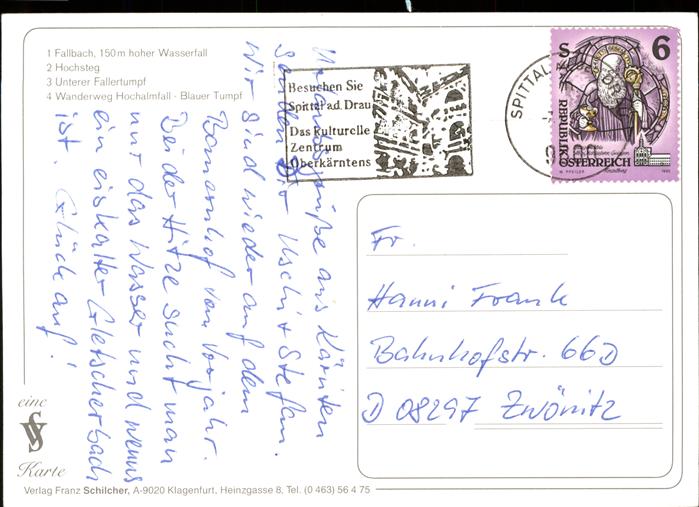 1 Fallbach, 150 m hoher Wasserfall
2 Hochsteg
3 Unterer Fallertumpf
4 Wanderweg Hochalmfall - Blauer Tumpf
Besuchen Sie
Spittal a.d. Drau
Das kulturelle
Zentrum
Oberkärntens
SPITTAL
S 6
REPUBLIK
ÖSTERREICH
Urlaubsgrüße aus Kärnten
senden Dir Uschi + Stefan.
Wir sind wieder auf dem
Bauernhof vom Vorjahr.
Bei der Hitze sucht man
nur das Wasser und wenns
ein eiskalter Gletscherbach
ist. Glück auf!
Fr.
Hanni Frank
Bahnhofstr. 66D
D 08297 Zwönitz
eine
Karte
Verlag Franz Schilcher, A-9020 Klagenfurt, Heinzgasse 8, Tel. (0 463) 56 4 75